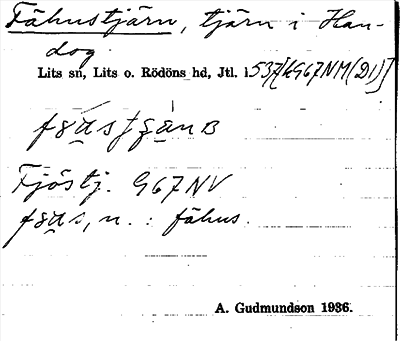 Fähustjärn, tjärn i Han-
dog.
Lits sn, Lits o. Rödöns hd, Jtl. l. 537 [G967NM(D1)]
Fjöstj. G67NV
fähus.
A. Gudmundson 1936.